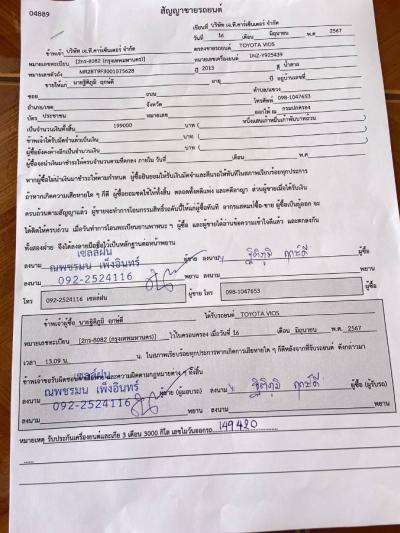 04889
สัญญาขายรถยนต์
เขียนที่ บริษัท เจ.ที.คาร์เซ็นเตอร์ จำกัด
วันที่ 16 เดือน มิถุนายน พ.ศ. 2567
ข้าพเจ้า บริษัท เจ.ที.คาร์เซ็นเตอร์ จำกัด ตกลงขายรถยนต์ TOYOTA VIOS
หมายเลขทะเบียน (2กร-8082 (กรุงเทพมหานคร)) หมายเลขเครื่องยนต์ 1NZ-Y925439
หมายเลขตัวถัง MR2BT9F3001075628 ปี 2013 สี น้ำตาล
ขายให้แก่ นายฐิติภูมิ ฤกษ์ดี อายุ ปี อยู่บ้านเลขที่
ซอย ถนน ตำบล/แขวง
อำเภอ/เขต จังหวัด โทรศัพท์ 098-1047653
บัตร ประชาชน หมายเลข ออกให้ ณ กรมปกครอง
เป็นจำนวนเงินทั้งสิ้น 199000 บาท ( หนึ่งแสนเก้าหมื่นเก้าพันบาทถ้วน )
ข้าพเจ้าได้รับมัดจำแล้วเป็นเงิน บาท ( )
ผู้ซื้อยังคงค้างอีกเป็นจำนวนเงิน บาท ( )
ผู้ซื้อจะนำเงินมาชำระให้ครบจำนวนตามที่ตกลง ภายใน วันที่ เดือน พ.ศ.
หากผู้ซื้อไม่นำเงินมาชำระให้ตามกำหนด ผู้ซื้อยินยอมให้ริบเงินมัดจำและผิดนัดได้ทันทีในสภาพเรียบร้อยทุกประการ
ถ้าหากเกิดความเสียหายใด ๆ ก็ดี ผู้ซื้อยอมชดใช้ให้ทั้งสิ้น ตลอดทั้งคดีแพ่ง และคดีอาญา ส่วนผู้ขายเมื่อได้รับเงิน
ครบถ้วนตามสัญญาแล้ว ผู้ขายจะทำการโอนกรรมสิทธิ์รถคันนี้ให้แก่ผู้ซื้อทันที
ทั้งสองฝ่าย จึงได้ลงลายมือชื่อไว้เป็นหลักฐานต่อหน้าพยาน
เซลล์ฝน
ลงนาม ณพชรมน เพ็งอินทร์ ผู้ขาย ลงนาม ฐิติภูมิ ฤกษ์ดี ผู้ซื้อ
ลงนาม 092-2524116 พยาน ลงนาม ผู้ซื้อ
โทร 092-2524116 เซลล์ฝน ผู้ขาย โทร 098-1047653 ผู้ซื้อ
ข้าพเจ้าผู้ซื้อ นายฐิติภูมิ ฤกษ์ดี ได้รับรถยนต์ TOYOTA VIOS
หมายเลขทะเบียน (2กร-8082 (กรุงเทพมหานคร)) ไว้ในครอบครอง เมื่อวันที่ 16 เดือน มิถุนายน พ.ศ. 2567
เวลา 13.09 น. น. ในสภาพเรียบร้อยทุกประการหากเกิดการเสียหายใด ๆ ก็ดีหลังจากที่รับรถยนต์ ดังกล่าวมา
ข้าพเจ้าขอรับผิดชอบ และความผิดตามกฎหมายต่าง ๆ ทั้งสิ้น
เซลล์ฝน
ลงนาม ณพชรมน เพ็งอินทร์ ผู้ขาย (ผู้มอบรถ) ลงนาม ฐิติภูมิ ฤกษ์ดี ผู้ซื้อ (ผู้รับรถ)
ลงนาม 092-2524116 พยาน ลงนาม พยาน
หมายเหตุ รับประกันเครื่องยนต์และเกียร์ 3 เดือน 3000 กิโล เลขไมล์วันออกรถ 149420